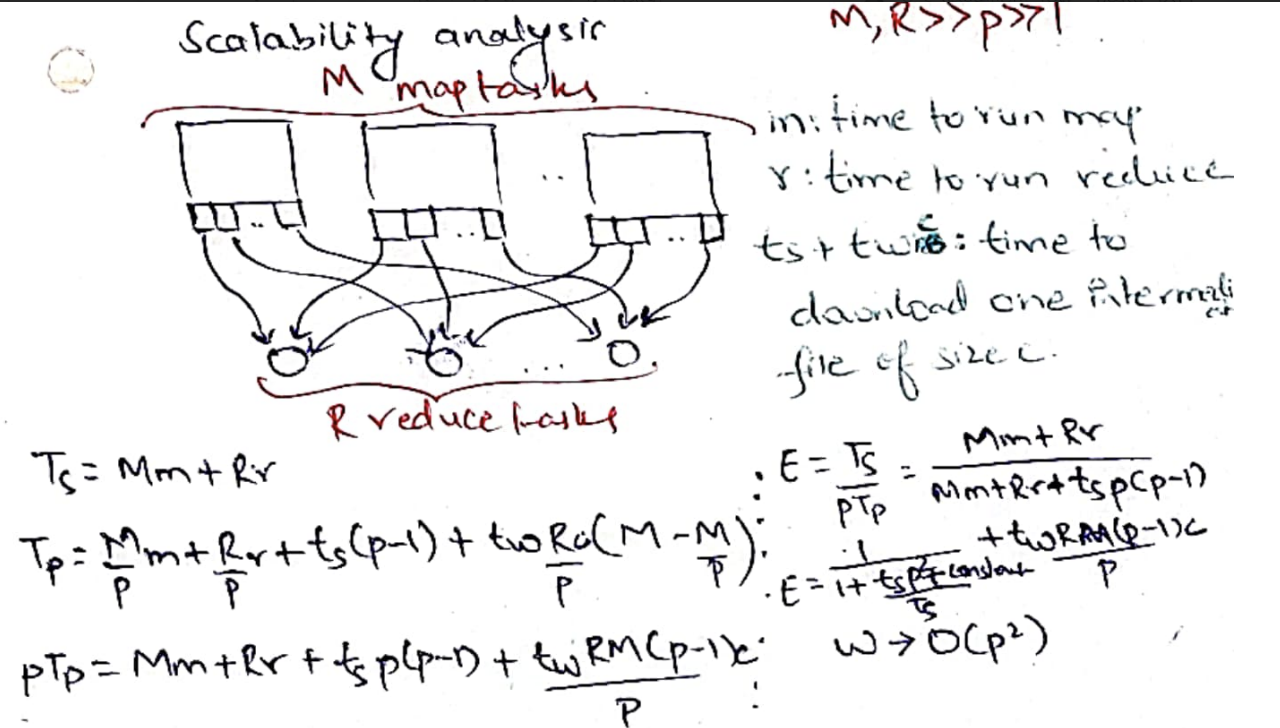 Scalability analysis
M, R >> p >> 1
M map tasks
m: time to run map
r: time to run reduce
ts + twc: time to
download one intermediate
file of size c.
R reduce tasks
Ts = Mm + Rr
Tp = M/p m + R/p r + ts(p-1) + tw R/p c(M - M/p)
pTp = Mm + Rr + ts p(p-1) + tw RM(p-1)c/p
E = Ts/pTp = Mm + Rr / Mm + Rr + ts p(p-1) + tw RM(p-1)c/p
E = 1/1 + ts p² + constant/Ts
W → O(p²)